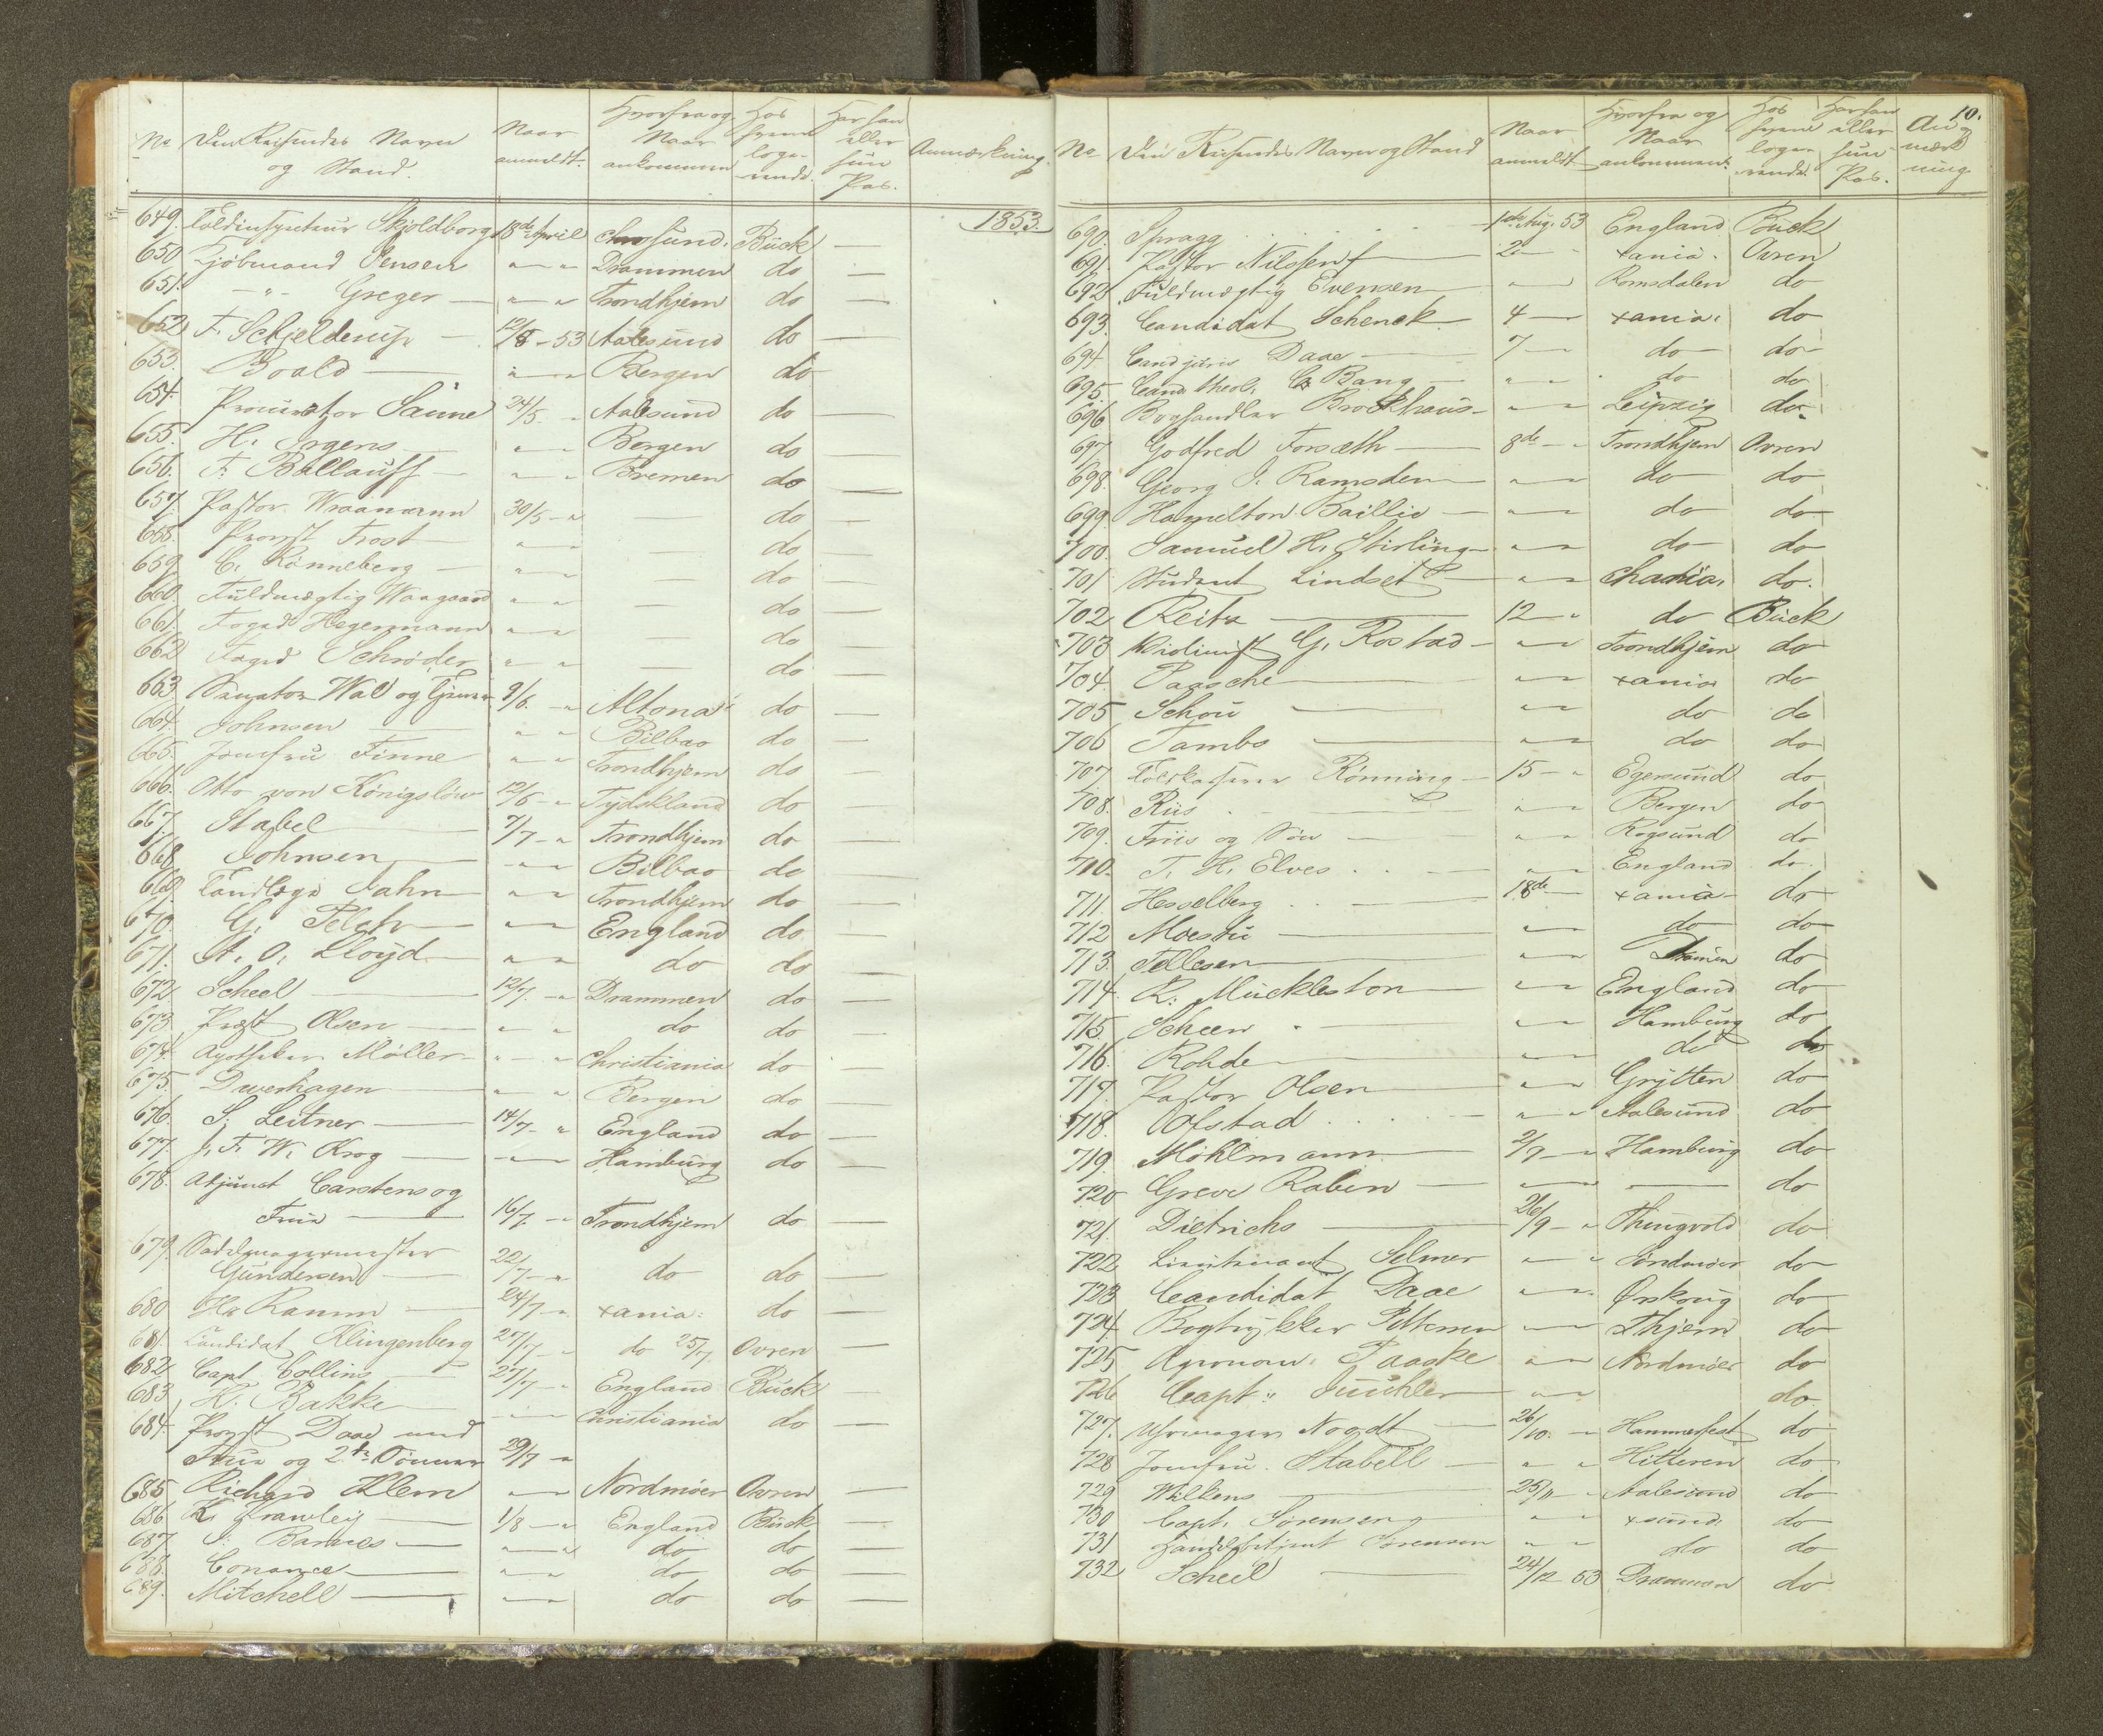 No Den Reisendes Navn og Stand. Naar anmeldt. Hvorfra og Naar ankommen Hos hvem logerende. Har han eller hun Pas. Anmærkning.
1853.
649. Toldinspecteur Skjoldborg 18de April Chrsund. Bück —
650 Kjøbmand Jensen " — " Drammen do —
651. — " — Greger — " — " Trondhjem do —
652 F. Schjelderup — 12/5 - 53 Aalesund do —
653. Boald — " — " Bergen do
654. Procurator Sanne 24/5 - " Aalesund do —
655. H. Irgens " — " Bergen do —
656. F. Ballauff — " — " Bremen do —
657. Pastor Wraamann 30/5 - " do —
658. Provst Frost — " — " do —
659 C. Rønneberg — " — " — do —
660. Fuldmægtig Waagaard " — " — do —
661. Foged Hegermann " — " — do —
662 Foged Schrøder " — " — do —
663. Senator Wal og 9/6 - " Altona do —
664. Johnsen — " — " Bilbao do —
665. Jomfru Finne " — " Trondhjem do —
666. Otto von Königslöw 12/6 - " Tydskland do —
667. Stabel — 7/7 - " Trondhjem do —
668. Johnsen — " — " Bilbao do —
669. Tandlæge Jahn — " — " Trondhjem do —
670. G. — " — " England do —
671. A. O. Lloyd — " — " do do —
672. Scheel — 12/7 - " Drammen do —
673. Præst Olsen — " — " do do —
674. Apotheker Møller - " — " Christiania do —
675. Dwerhagen — " — " Bergen do —
676. S. Leitner — 14/7 - " England do —
677. J. F. W. Krog — " — " Hamburg do —
678. Adjunct Carstens og
Frue — 16/7 - " Trondhjem do —
679. Sadelmagermester
Gundersen — 22/7 - " do do —
680 Hr Ramm — 24/7 - " xania. do —
681. Candidat Klingenberg 27/7 - " do 25/7. Ovren —
682. Capt Collins — 27/7 - " England Bück —
683. H. Bakke — " — " Christiania do —
684. Provst Daae med
Frue og 2de Sønner 29/7 - "
685 Richard Klem " — " Nordmøer Ovren —
686 K. Frawley — 1/8 - " England Bück —
687. Barnes — " — " do do —
688. Conance — " — " do do —
689. Mitchell — " — " do do —
10.
No Den Reisendes Navn og Stand Naar anmeldt Hvorfra og Naar ankommen. Hos hvem logerende. Har han eller hun Pas. Anmærkning
690. Spragg . . . . . 1ste Aug. 53 England Bück
691. Pastor Nilssen — 2 — xania. Ovren
692. Fuldmægtig Evensen — " — Romsdalen do
693. Candidat Schenck — 4 — xania. do
694. Cand juris Daae — 7 — do do
695. Cand theol. Bang — " — " do do
696 Boghandler Brockhaus - " — " Leipzig do
697. Godfred Forseth — 8de - " Trondhjem Ovren
698. Georg J. Ramsden — " — " do do
699. Hamelton Baillie — " — " do do
700. Samuel H. Stirling - " — " do do
701 Student Lindset — " — " Chania. do.
702 Reitz — 12 - " do Bück
703 Violinist G. Rostad - " — " Trondhjem do
704. Paasche — " — " xania do
705 Schou — " — " do do
706 Tambs — " — " do do
707. Toldkasserer Rønning — 15 - " Egersund do
708. Riis . — " — " Bergen do
709. Friis og Søn — " — " do
710. T. H. Elves . . — " — " England do.
711. Hesselberg . . — 18de — xania do
712 Moestu — " — " do do
713. Tellesen — " — " do
714. R. Muckleston — " — " England do
715 Scheen . — " — " Hamburg do
716. Rohde — " — " do do
717. Pastor Olsen — " — " Grytten do
718. Ofstad . . . — " — " Aalesund do
719. Möhlmann — 2/9 - " Hamburg do
720 Greve Raben — " — " — do
721. Dietrichs — 26/9 - " Thingvold do
722 Lieutenant Selmer " — " Søndmøer do
723 Candidat Daae " — " Ørskoug do
724. Bogtrykker Petersen " — " Thjem do
725 Agronom. Paaske " — " Nordmøer do
726 Capt. " — " do.
727. Uhrmager Noodt — 26/10. - " Hammerfest do
728 Jomfru. Stabell — " — " Hitteren do
729 Wilkens — 25/11 - " Aalesund do
730 Capt. Sørensen " — " xsund. do
731 Handelsbetjent Sørensen " — " do do
732 Scheel — 24/12 53 Drammen do